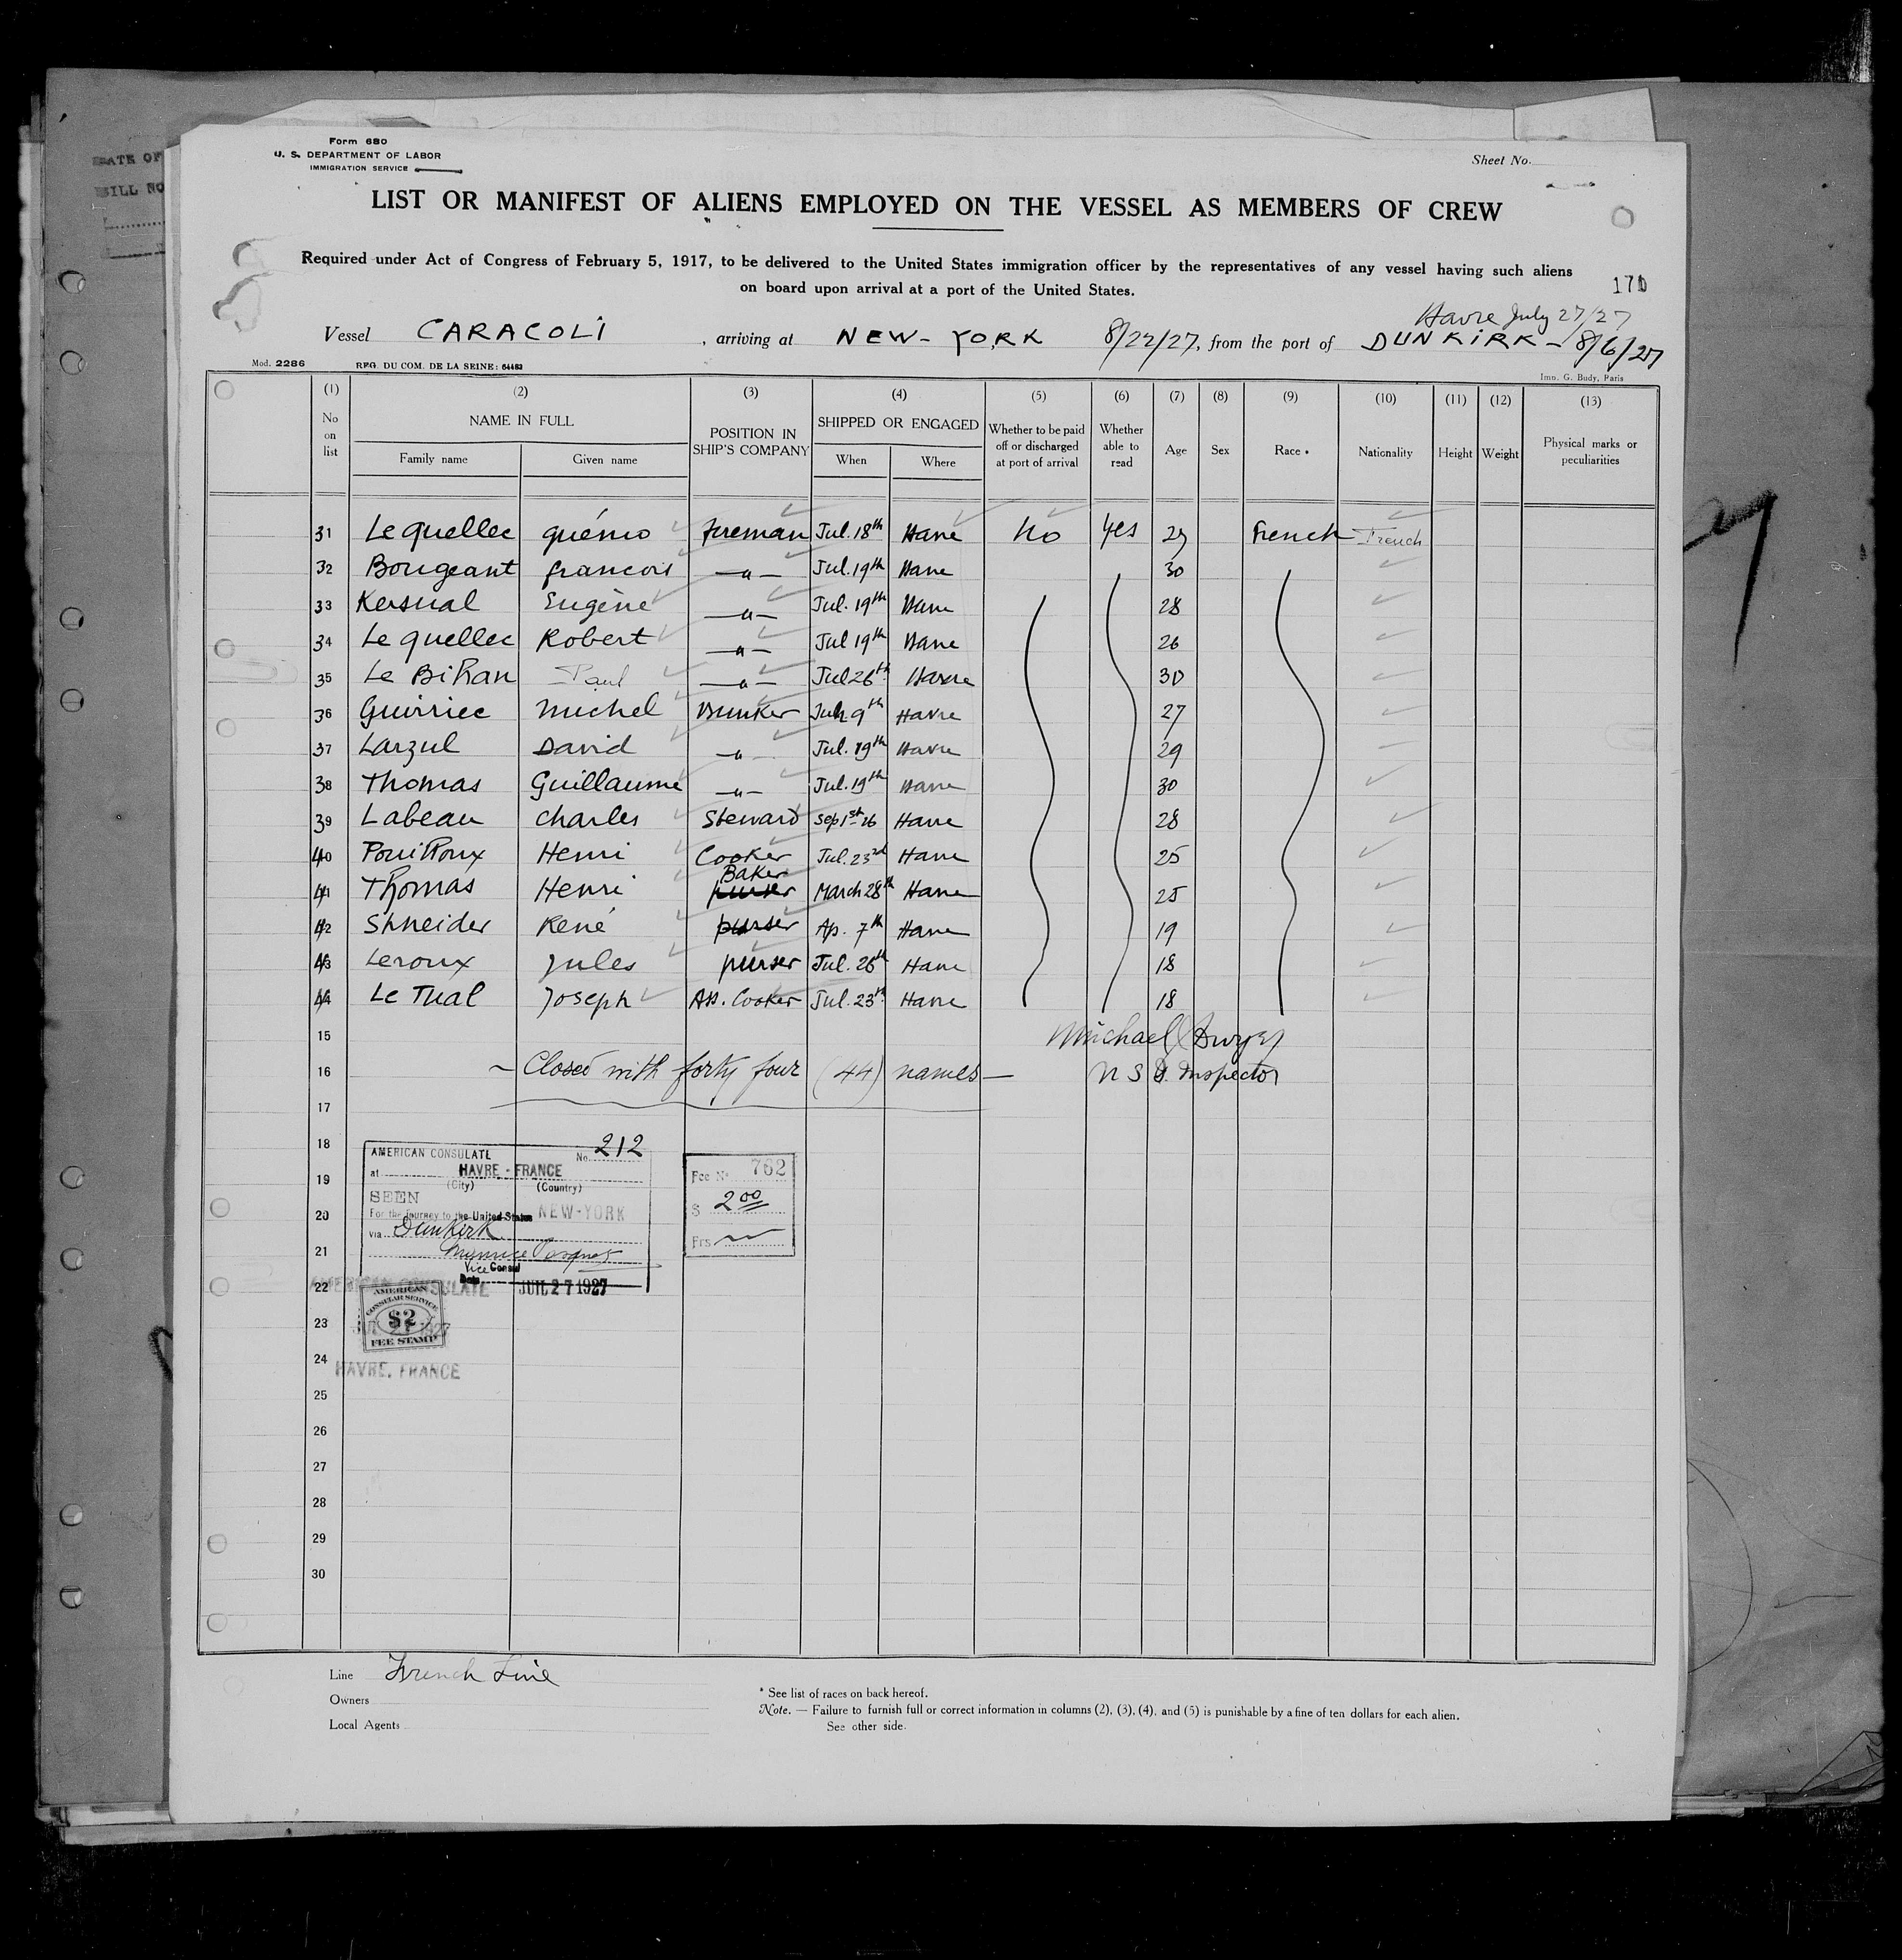 DATE OF
BILL NO
Form 680
U. S. DEPARTMENT OF LABOR
IMMIGRATION SERVICE
Sheet No.
LIST OR MANIFEST OF ALIENS EMPLOYED ON THE VESSEL AS MEMBERS OF CREW
Required under Act of Congress of February 5, 1917, to be delivered to the United States immigration officer by the representatives of any vessel having such aliens
on board upon arrival at a port of the United States.
170
Havre July 27/27
Vessel CARACOLI , arriving at NEW-YORK 8/22/27, from the port of DUNKIRK - 8/6/27
Mod. 2286 REG. DU COM. DE LA SEINE: 64483
Imp. G. Budy, Paris
(1) (2) (3) (4) (5) (6) (7) (8) (9) (10) (11) (12) (13)
No on list NAME IN FULL Family name Given name POSITION IN SHIP'S COMPANY SHIPPED OR ENGAGED When Where Whether to be paid off or discharged at port of arrival Whether able to read Age Sex Race * Nationality Height Weight Physical marks or peculiarities
31 Le quellec guénio Fireman Jul. 18th Havre No Yes French French
32 Bougeant francois —"— Jul. 19th Havre 30
33 Kersual Eugène —"— Jul. 19th Havre 28
34 Le quellec Robert —"— Jul 19th Havre 26
35 Le Bihan Paul —"— Jul 26th Havre 30
36 Guirriec Michel Bunker 9th Havre 27
37 Larzul David —"— Jul. 19th Havre 29
38 Thomas Guillaume —"— Jul. 19th Havre 30
39 Labeau Charles Steward Sep 1st 26 Havre 28
40 Henri Cooker Jul. 23rd Havre 25
Baker
41 Thomas Henri purser March 28th Havre 25
42 Shneider René purser Ap. 7th Havre 19
43 Leroux Jules purser Jul. 26th Havre 18
44 Le Tual Joseph Ass. Cooker Jul. 23rd Havre 18
15 Michael Dwyer
16 — Closed with forty four (44) names — U S I. Inspector
17
18
19
20
21
22
23
24
25
26
27
28
29
30
AMERICAN CONSULATE No. 212
at HAVRE - FRANCE
(City) (Country)
SEEN
For the journey to the United States NEW-YORK
via Dunkirk
Vice Consul
Date JUIL 27 1927
Fee No 762
$ 2 00
Frs
AMERICAN CONSULATE
AMERICAN
CONSULAR SERVICE
$2
FEE STAMP
HAVRE, FRANCE
Line French Line
Owners
Local Agents
* See list of races on back hereof.
Note. — Failure to furnish full or correct information in columns (2), (3), (4), and (5) is punishable by a fine of ten dollars for each alien.
See other side.